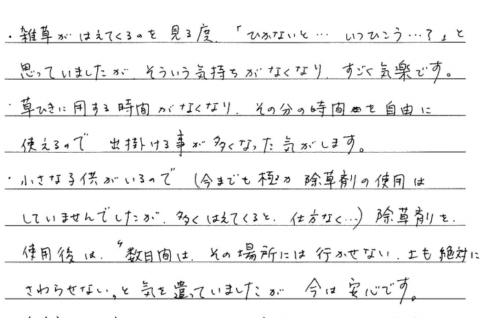 ・雑草がはえてくるのを見る度、「ひかないと… いつひこう…?」と
思っていましたが、そういう気持ちがなくなり、すごく気楽です。
・草ひきに用する時間がなくなり、その分の時間を自由に
使えるので 出掛ける事が多くなった気がします。
・小さな子供がいるので (今までも極力 除草剤の使用は
していませんでしたが、多くはえてくると、仕方なく…) 除草剤を、
使用後は、〝数日間は、その場所には行かせない、土も絶対に
さわらせない〟と気を遣っていましたが 今は安心です。